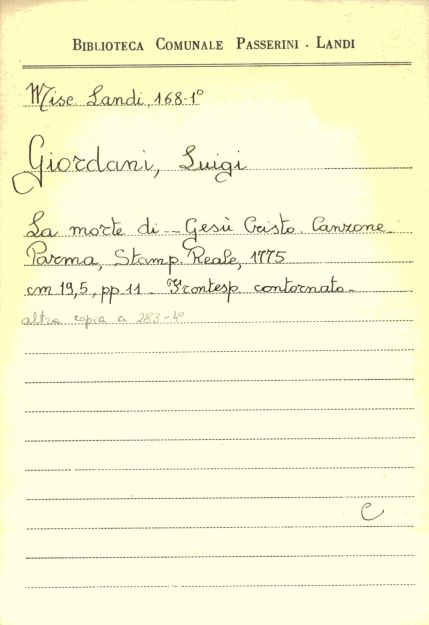 BIBLIOTECA COMUNALE PASSERINI - LANDI
Misc Landi, 168-1°
Giordani, Luigi
La morte di -- Gesù Cristo. Canzone -
Parma, Stamp. Reale, 1775
cm 19,5, pp 11 - Frontesp. contornato -
altra copia a 283-4°
C